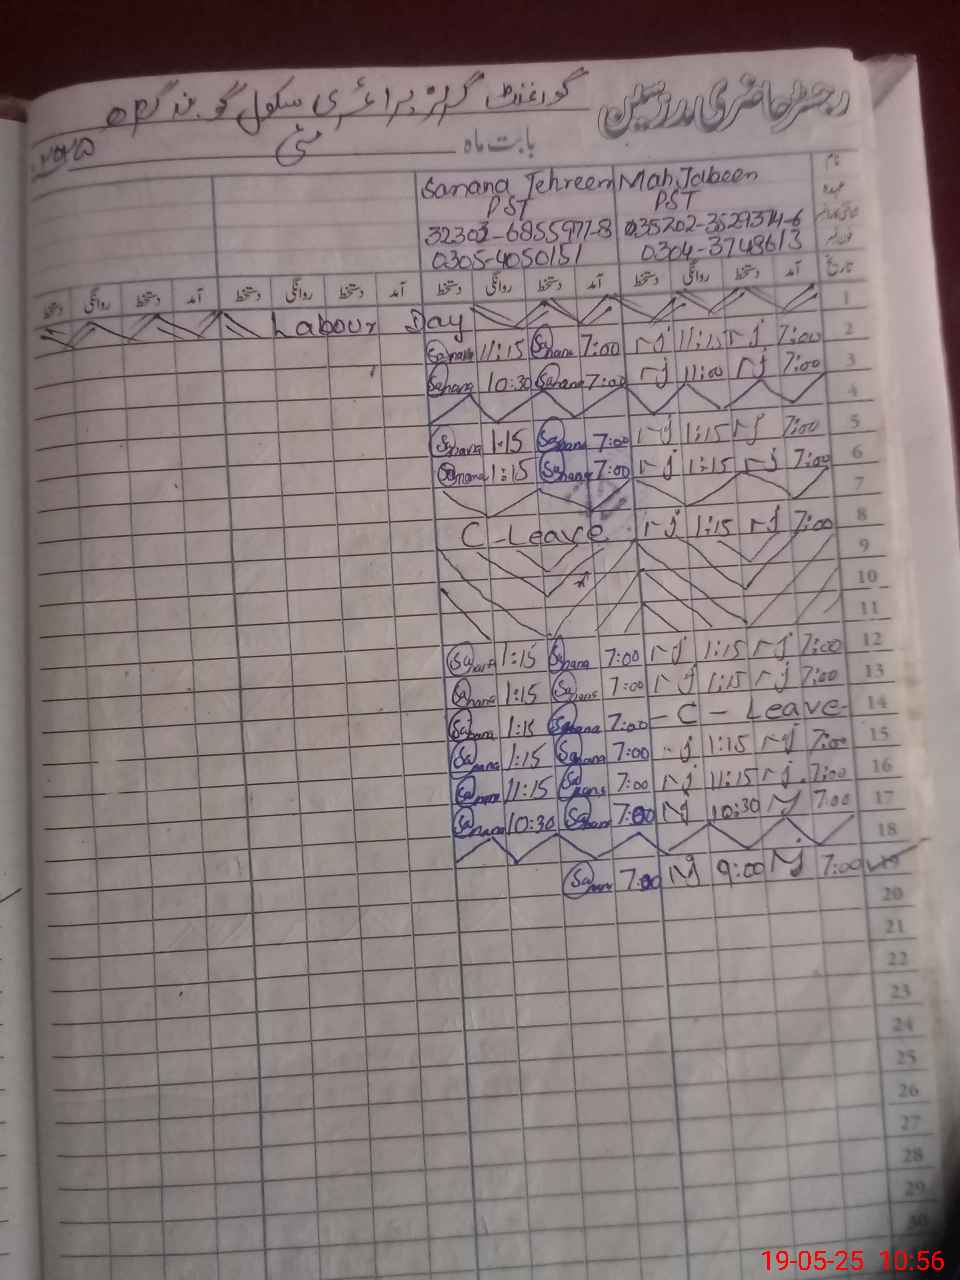 رجسٹر حاضری مدرسین گورنمنٹ گرلز پرائمری سکول گوبند گڑھ
بابت ماہ مئی ۲۰۲۵
نام Mah Jabeen Sanana Tehreem
عہدہ PST PST
35202-3529374-6 32303-6855977-8
0304-3748613 0305-4050151
تاریخ آمد دستخط روانگی دستخط آمد دستخط روانگی دستخط آمد دستخط روانگی دستخط آمد دستخط روانگی دستخط
1 Labour Day
2 7:00 rj 11:15 rj 7:00 Sanana 11:15 Sanana
3 7:00 rj 11:00 rj 7:00 Sanana 10:30 Sanana
4
5 7:00 rj 1:15 rj 7:00 Sanana 1:15 Sanana
6 7:00 rj 1:15 rj 7:00 Sanana 1:15 Sanana
7
8 7:00 rj 1:15 rj C-Leave
9
10
11
12 7:00 rj 1:15 rj 7:00 Sanana 1:15 Sanana
13 7:00 rj 1:15 rj 7:00 Sanana 1:15 Sanana
14 - C - Leave - 7:00 Sanana 1:15 Sanana
15 7:00 rj 1:15 rj 7:00 Sanana 1:15 Sanana
16 7:00 rj 11:15 rj 7:00 Sanana 11:15 Sanana
17 7:00 rj 10:30 rj 7:00 Sanana 10:30 Sanana
18
19 7:00 rj 9:00 rj 7:00 Sanana
20
21
22
23
24
25
26
27
28
29
30
19-05-25 10:56